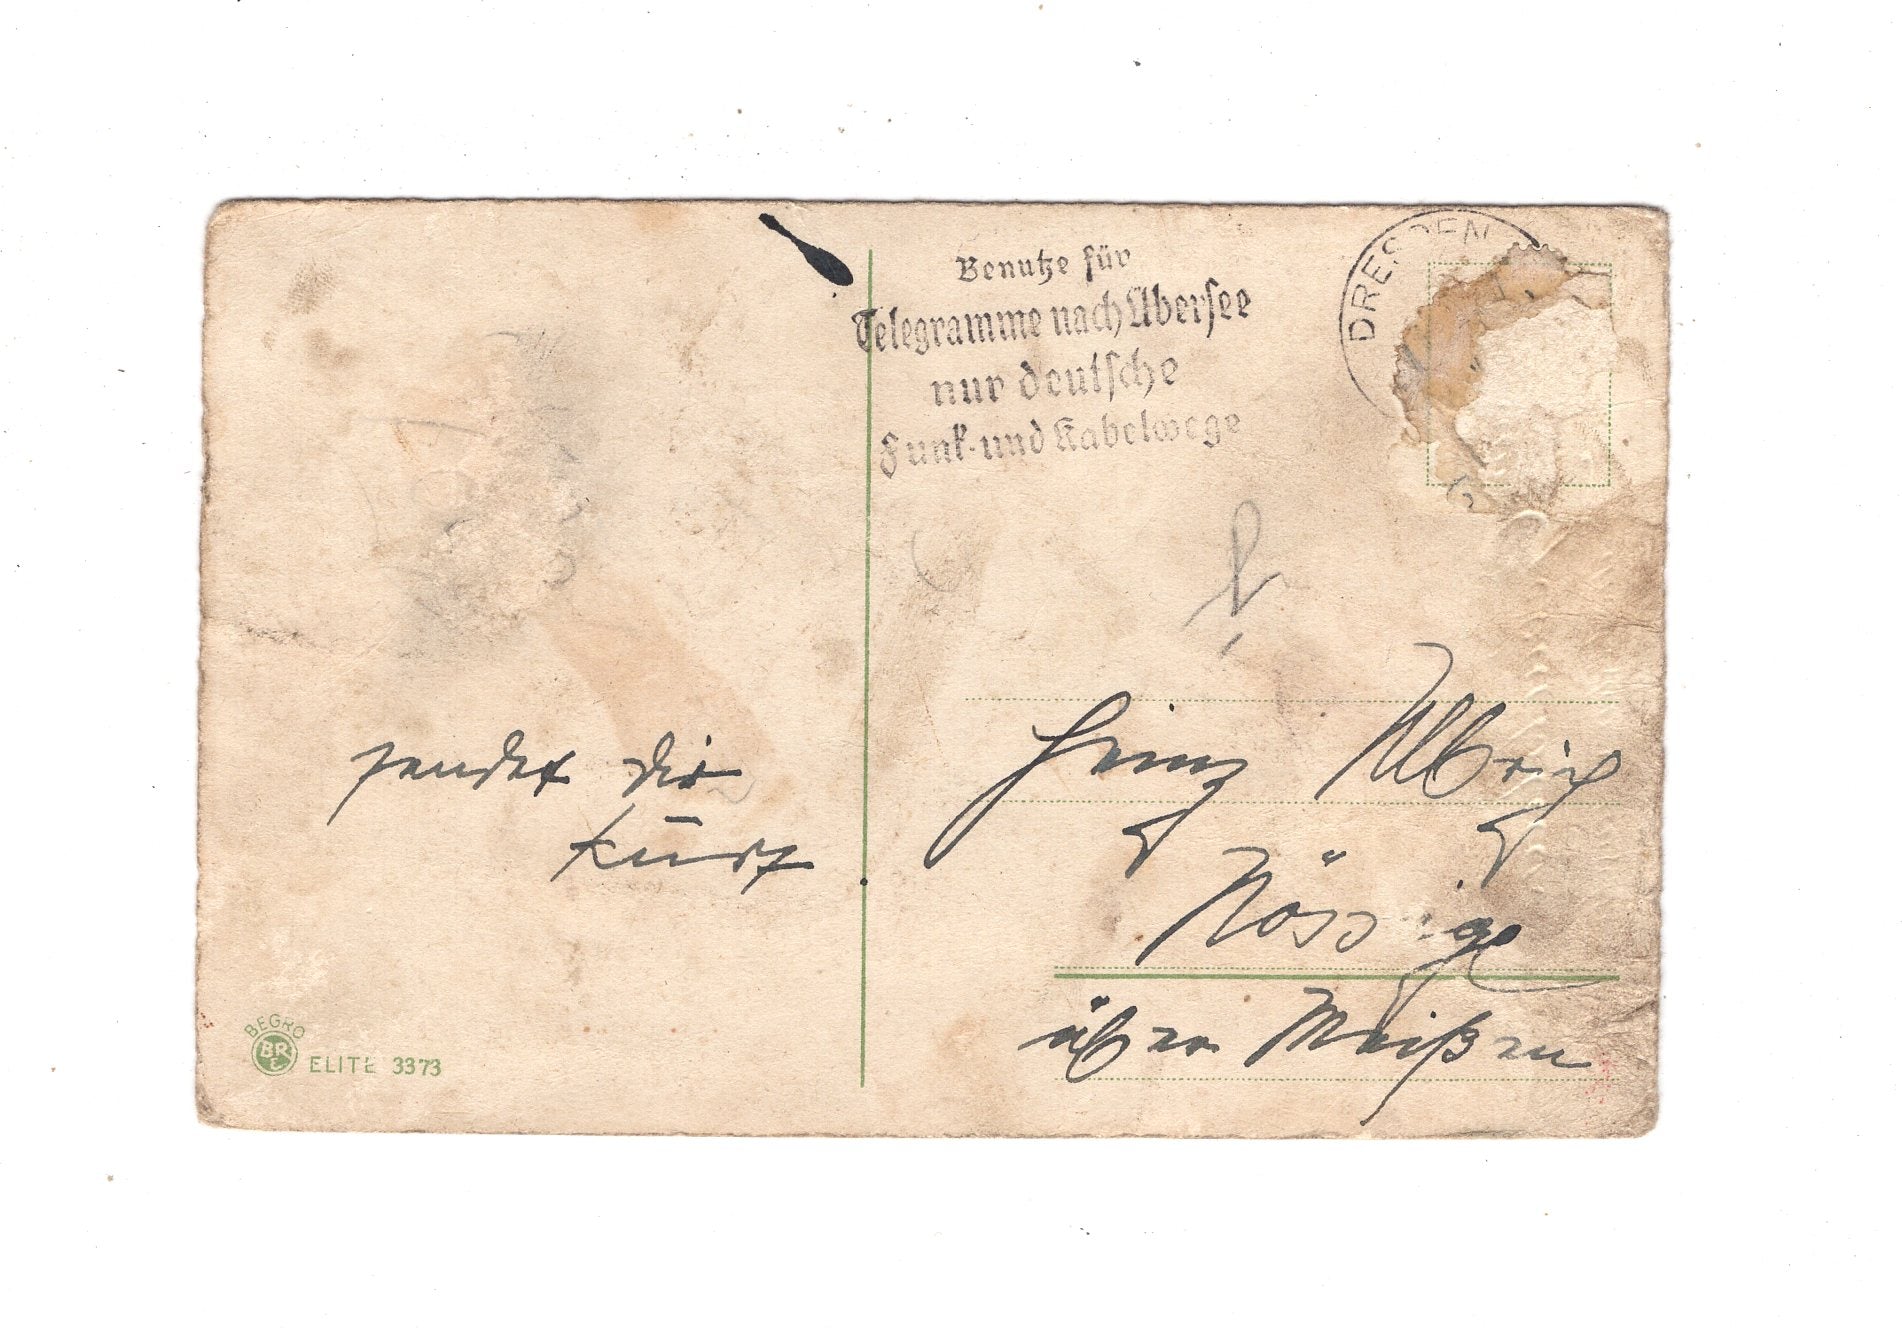 Benutze für
Telegramme nach Übersee
nur deutsche
Funk- und Kabelwege
DRESDEN
sendet dir
Kurt
Heinz Ulbrich
Nössige
über Meißen
BEGRO
BR
ELITE 3373